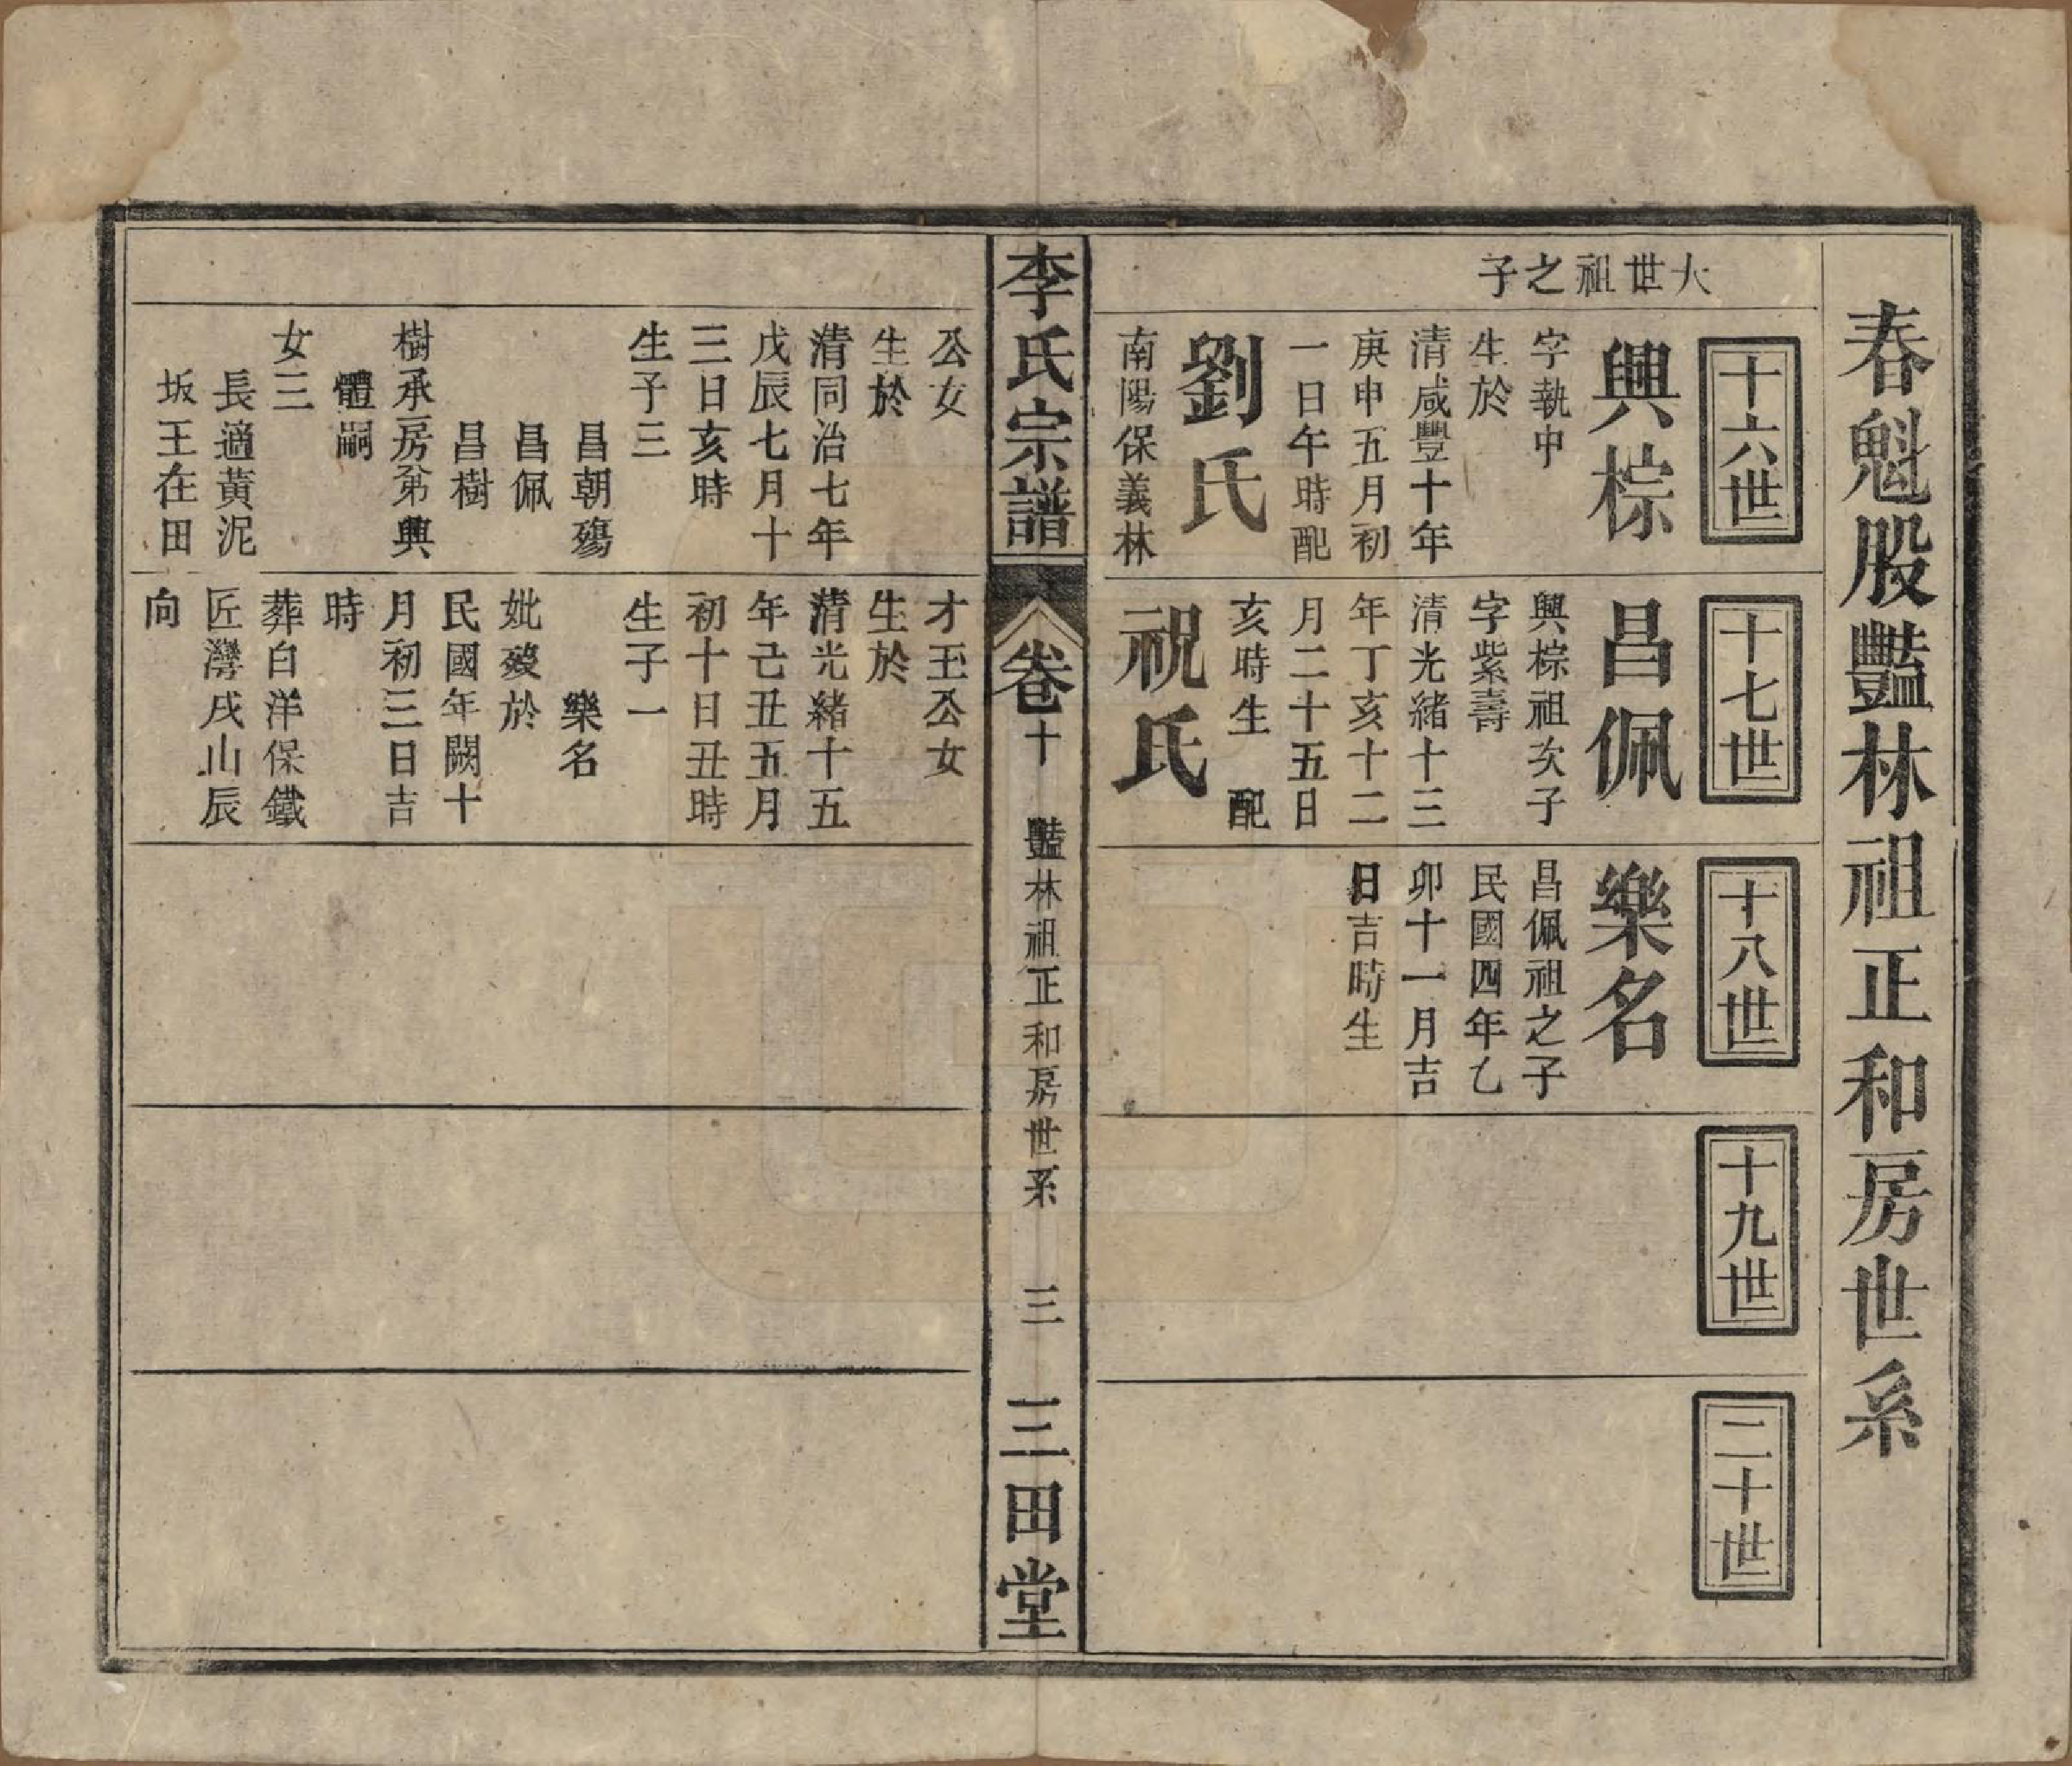 春魁股豔林祖正和房世系
大世祖之子
十六世
興棕
字執中
生於
清咸豐十年
庚申五月初
一日午時配
劉氏
南陽保義林
十七世
昌佩
興棕祖次子
字紫壽
清光緒十三
年丁亥十二
月二十五日
亥時生 配
祝氏
十八世
樂名
昌佩祖之子
民國四年乙
卯十一月吉
日吉時生
十九世
二十世
李氏宗譜
卷十
豔林祖正和房世系
三
三田堂
公女
生於
清同治七年
戊辰七月十
三日亥時
生子三
昌朝殤
昌佩
昌樹
樹承房弟興
體嗣
女三
長適黃泥
坂王在田
才王公女
生於
清光緒十五
年己丑五月
初十日丑時
生子一
樂名
妣歿於
民國年闕十
月初三日吉
時
葬白洋保鐵
匠灣戌山辰
向